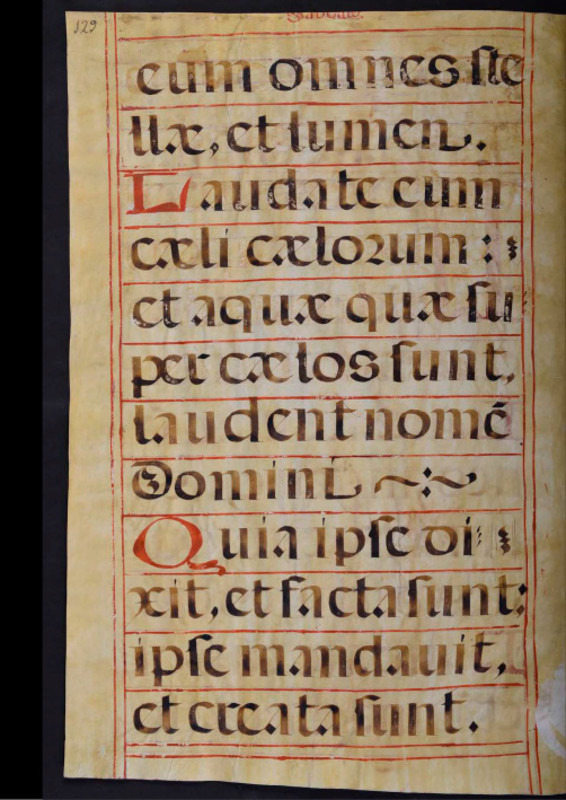 129
eum omnes ſte
llæ, et lumen.
Laudate eum
cæli cælorum :
et aquæ quæ ſu
per cælos ſunt,
laudent nomē
Domini ~:~
Quia ipſe di
xit, et facta ſunt:
ipſe mandauit,
et creata ſunt.